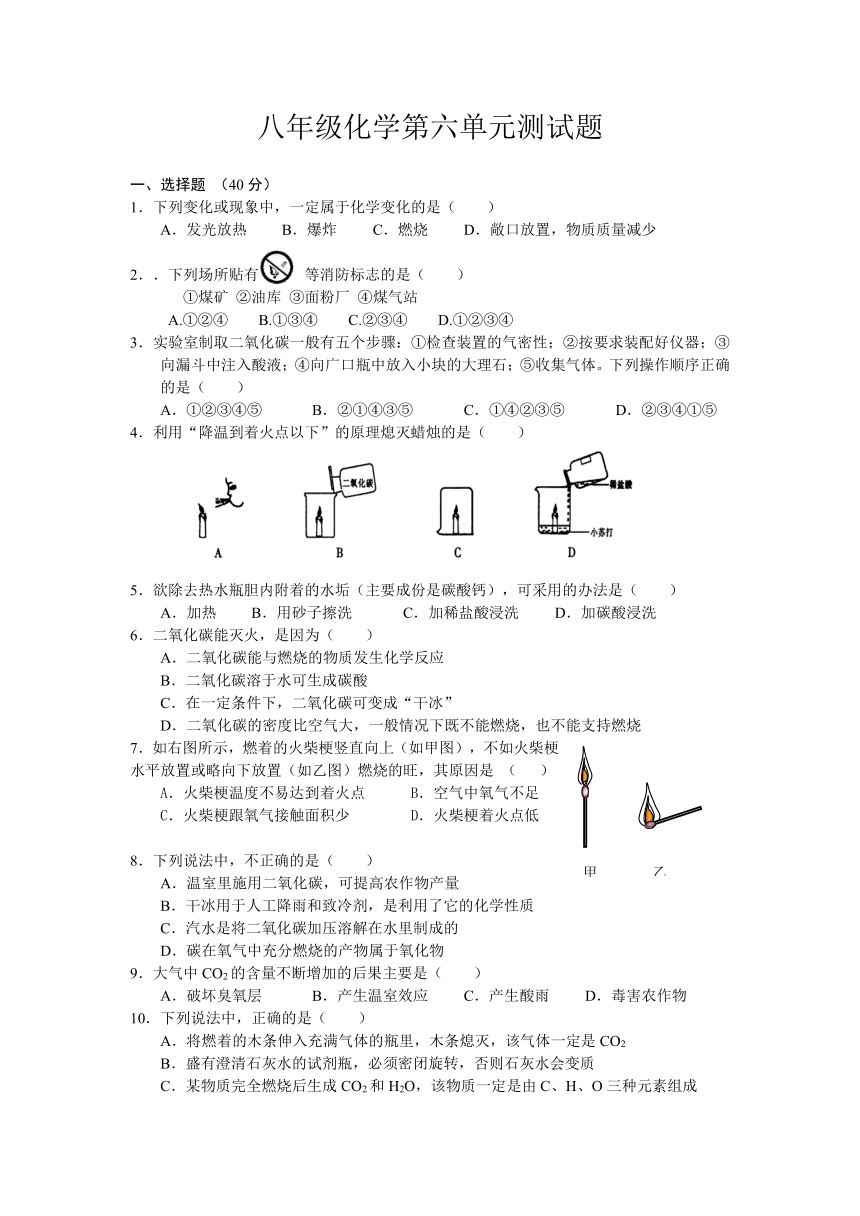 八年级化学第六单元测试题
一、选择题 （40 分）
1．下列变化或现象中，一定属于化学变化的是（　　）
A．发光放热　B．爆炸　C．燃烧　D．敞口放置，物质质量减少
2．. 下列场所贴有　等消防标志的是（　　）
①煤矿 ②油库 ③面粉厂 ④煤气站
A.①②④　B.①③④　C.②③④　D.①②③④
3．实验室制取二氧化碳一般有五个步骤：①检查装置的气密性；②按要求装配好仪器；③
向漏斗中注入酸液；④向广口瓶中放入小块的大理石；⑤收集气体。下列操作顺序正确
的是（　　）
A．①②③④⑤　B．②①④③⑤　C．①④②③⑤　D．②③④①⑤
4．利用“降温到着火点以下”的原理熄灭蜡烛的是（　　）
二氧化碳
稀盐酸
小苏打
A　B　C　D
5．欲除去热水瓶胆内附着的水垢（主要成份是碳酸钙），可采用的办法是（　　）
A．加热　B．用砂子擦洗　C．加稀盐酸浸洗　D．加碳酸浸洗
6．二氧化碳能灭火，是因为（　　）
A．二氧化碳能与燃烧的物质发生化学反应
B．二氧化碳溶于水可生成碳酸
C．在一定条件下，二氧化碳可变成“干冰”
D．二氧化碳的密度比空气大，一般情况下既不能燃烧，也不能支持燃烧
7．如右图所示，燃着的火柴梗竖直向上（如甲图），不如火柴梗
水平放置或略向下放置（如乙图）燃烧的旺，其原因是 （　　）
A．火柴梗温度不易达到着火点　B．空气中氧气不足
C．火柴梗跟氧气接触面积少　D．火柴梗着火点低
甲　乙
8．下列说法中，不正确的是（　　）
A．温室里施用二氧化碳，可提高农作物产量
B．干冰用于人工降雨和致冷剂，是利用了它的化学性质
C．汽水是将二氧化碳加压溶解在水里制成的
D．碳在氧气中充分燃烧的产物属于氧化物
9．大气中 CO₂的含量不断增加的后果主要是（　　）
A．破坏臭氧层　B．产生温室效应　C．产生酸雨　D．毒害农作物
10．下列说法中，正确的是（　　）
A．将燃着的木条伸入充满气体的瓶里，木条熄灭，该气体一定是 CO₂
B．盛有澄清石灰水的试剂瓶，必须密闭旋转，否则石灰水会变质
C．某物质完全燃烧后生成 CO₂和 H₂O，该物质一定是由 C、H、O 三种元素组成